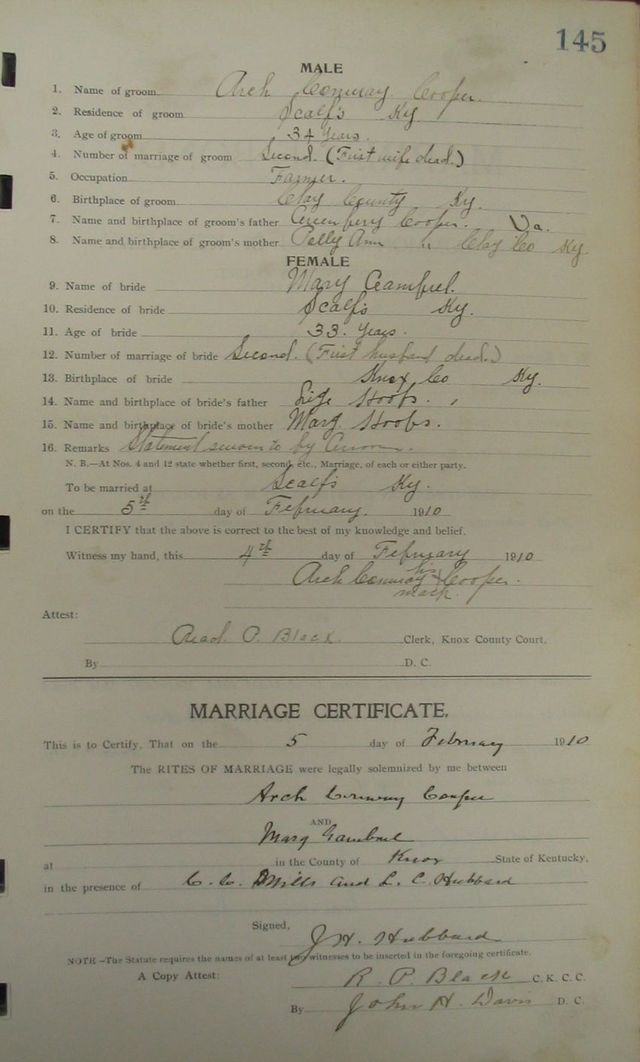 145
MALE
1. Name of groom Arch Conway Cooper.
2. Residence of groom Scalf's Ky
3. Age of groom 34 Years.
4. Number of marriage of groom Second. (First wife dead.)
5. Occupation Farmer.
6. Birthplace of groom Clay County Ky.
7. Name and birthplace of groom's father Greenberry Cooper. Va.
8. Name and birthplace of groom's mother Polly Ann " Clay Co Ky.
FEMALE
9. Name of bride Mary Gambrel.
10. Residence of bride Scalf's Ky.
11. Age of bride 33. Years.
12. Number of marriage of bride Second. (First husband dead.)
13. Birthplace of bride Knox Co Ky.
14. Name and birthplace of bride's father Lige Hoobs.
15. Name and birthplace of bride's mother Marg Hoobs.
16. Remarks Statement sworn to by Groom.
N. B.—At Nos. 4 and 12 state whether first, second, etc., Marriage, of each or either party.
To be married at Scalf's Ky.
on the 5th day of February. 1910
I CERTIFY that the above is correct to the best of my knowledge and belief.
Witness my hand, this 4th day of February 1910
Arch Conway his x mark Cooper.
Attest:
Read P. Black. Clerk, Knox County Court.
By D. C.
MARRIAGE CERTIFICATE.
This is to Certify, That on the 5 day of February 1910
The RITES OF MARRIAGE were legally solemnized by me between
Arch Conway Cooper
AND
Mary Gambrel
at in the County of Knox State of Kentucky,
in the presence of C. C. Mills and L. C. Hubbard
Signed, J. H. Hubbard
NOTE—The Statute requires the names of at least two witnesses to be inserted in the foregoing certificate.
A Copy Attest: R. P. Black C. K. C. C.
By John H. Davis D. C.